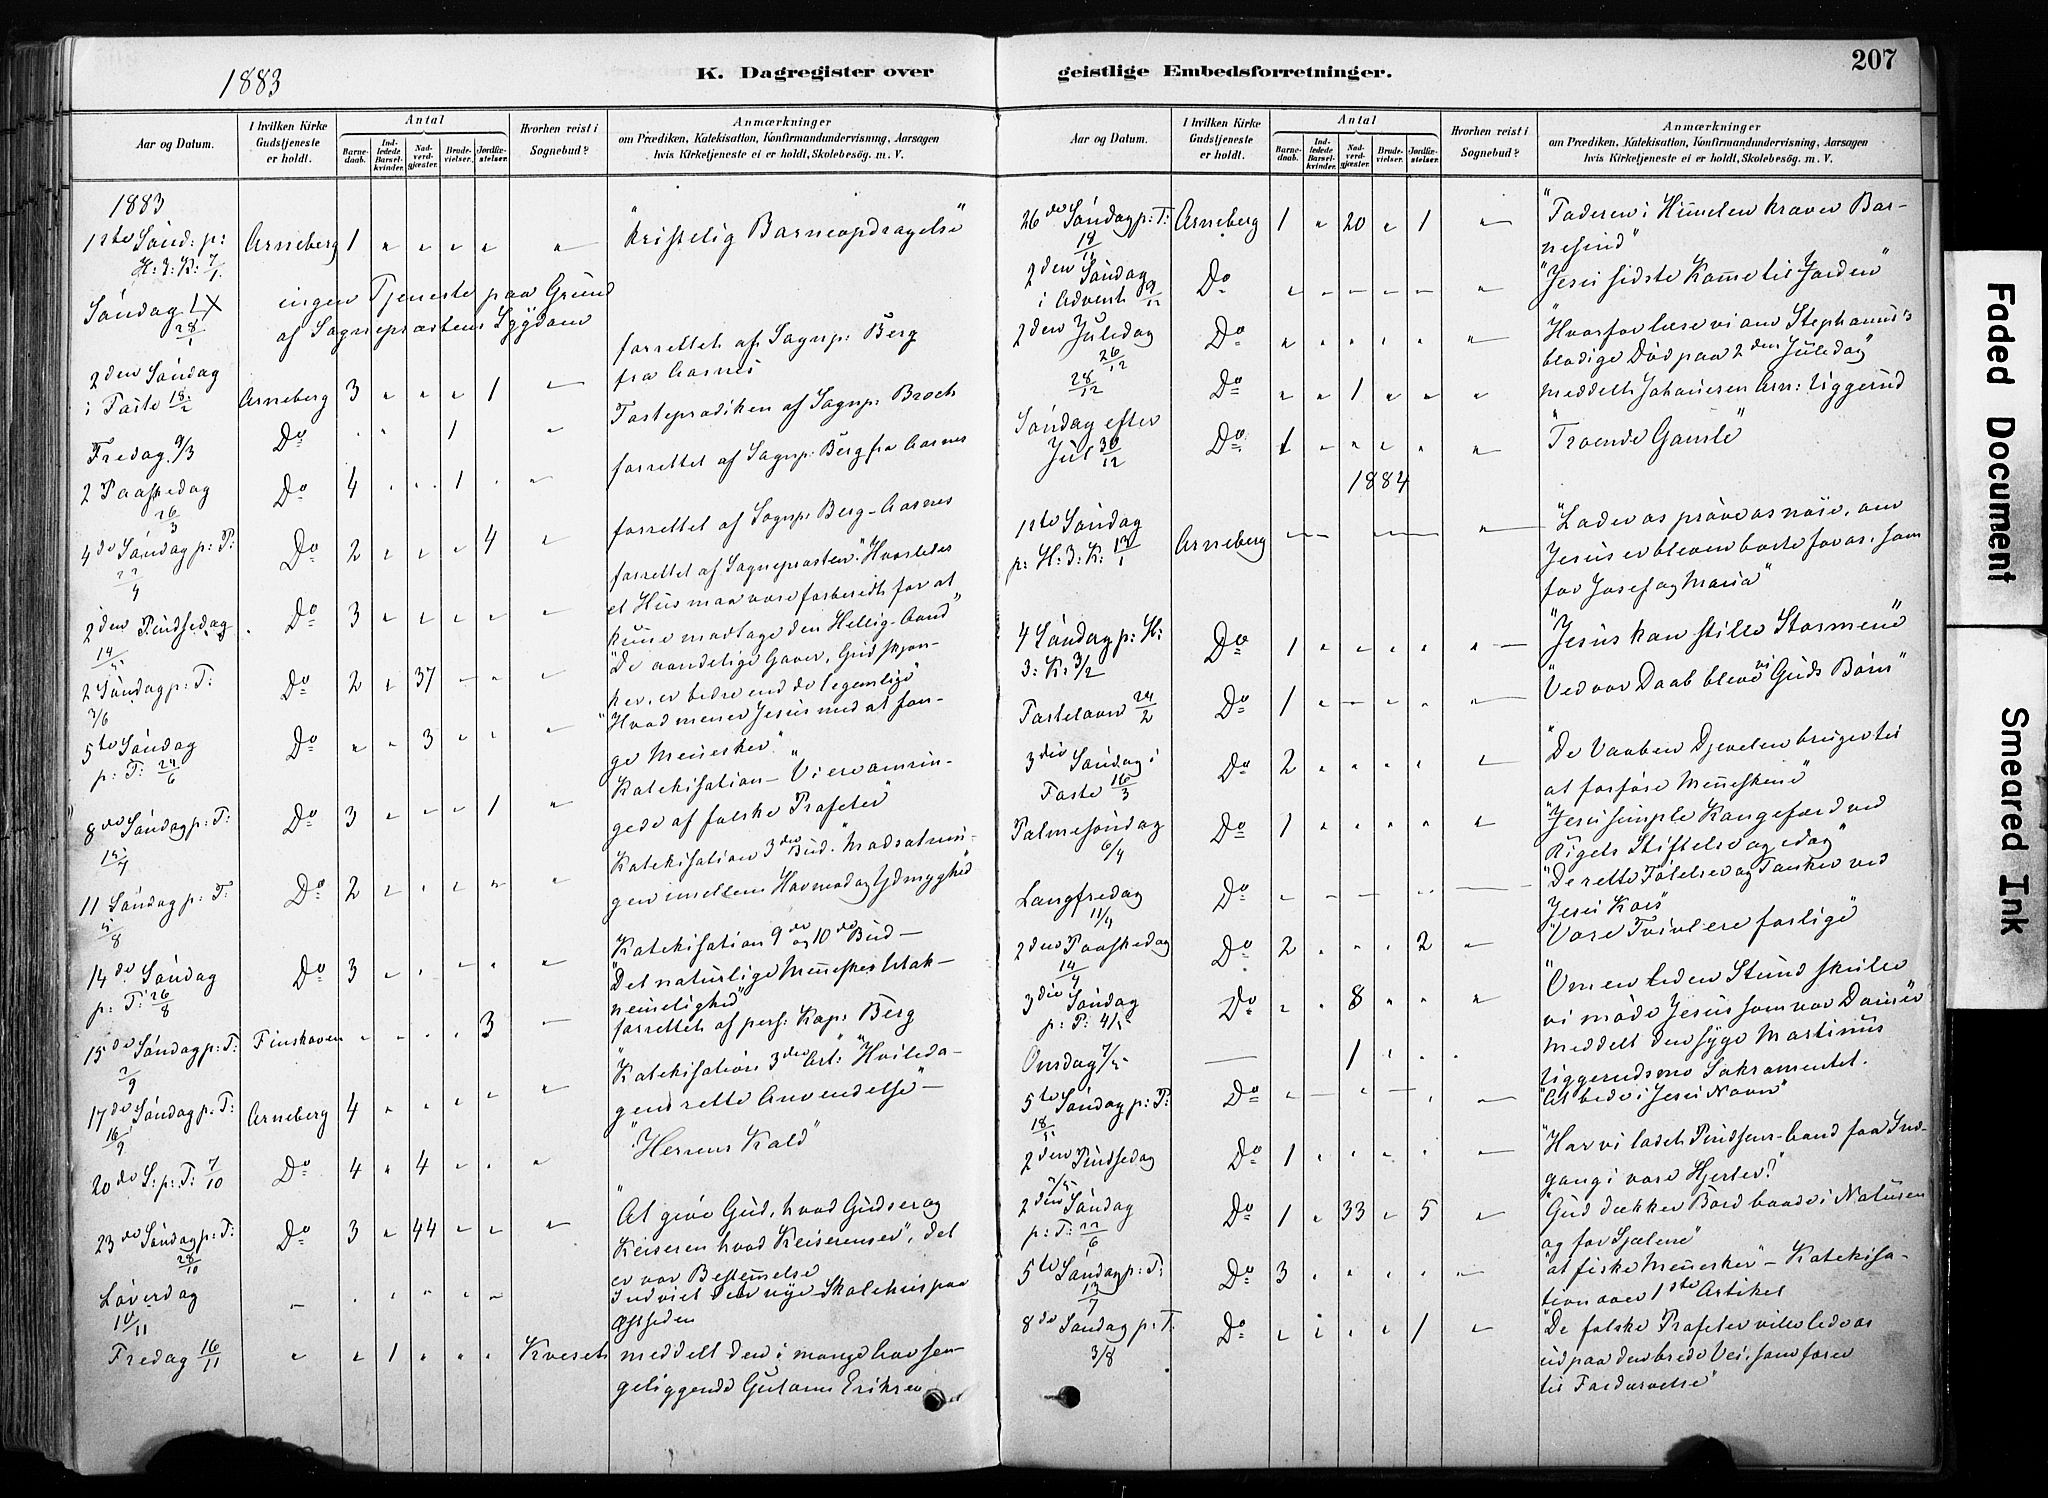 207
1883
K. Dagregister over
geistlige Embedsforretninger.
Faded Document
Smeared Ink
Aar og Datum.
I hvilken Kirke Gudstjeneste er holdt.
Antal
Barnedaab.
Indledede Barselkvinder.
Nadverdgjæster.
Brudevielser.
Jordfæstelser.
Hvorhen reist i Sognebud?
Anmærkninger
om Prædiken, Katekisation, Konfirmandundervisning, Aarsagen
hvis Kirketjeneste ei er holdt, Skolebesög. m. V.
1883
1ste Sönd: p: H: 3: K: 7/1 Arneberg 1 " " " " " "Kristelig Barneopdragelse"
Söndag LX 28/1 ingen Tjeneste paa Grund
af Sognepræstens Sygdom
forrettet af Sognp: Berg
fra Aasnes
2den Söndag
i Faste 18/2 Arneberg 3 " " " 1 " Fasteprædiken af Sognp: Broch
Fredag 9/3 Do 1 " forrettet af Sognp: Berg fra Aasnes
2 Paaskedag 26/3 Do 4 1 " forrettet af Sognp: Berg-Aasnes
4de Söndag p: P: 22/4 Do 2 " " " 4 " forrettet af Sognepræsten. "Hvorledes
et Hus maa være forberedt for at
kune modtage den Hellig-Aand"
2den Pindsedag 14/5 Do 3 " " " " "
"De aandelige Gaver, Gud skjæn-
ker, er bedre end de legemlige"
2 Söndag p: T: 3/6 Do 2 " 37 " " "
"Hvad mener Jesus med at fan-
ge Menesker."
5te Söndag
p: T: 24/6 Do " " 3 " " "
Katekisation – "Vi ere omrin-
gede af falske Profeter"
8de Söndag p: T: 15/7 Do 3 " " " 1 "
Katekisation 3die Bud. "Modsætnin-
gen imellem Hovmod og Ydmyghed
11 Söndag p: T: 5/8 Do 2 " " " " "
Katekisation 9de og 10de Bud –
"Det naturlige Meneskes Utak-
nemelighed"
14de Söndag
p: T: 26/8 Do 3 " " " " "
forrettet af pers: Kap: Berg
15de Söndag p: T: 2/9 Finskoven " " " " 3 –
"Katekisation 3die Art: "Hvileda-
gens rette Anvendelse" –
17de Söndag p: T: 16/9 Arneberg 4 " " " " "
"Herrens Kald"
20de S: p: T: 7/10 Do 4 " 4 " " "
"At give Gud, hvad Guds er og
Keiseren hvad Keiserens er", det
er vor Bestemelse
23de Söndag p: T: 28/10 Do 3 " 44 " " "
Löverdag 10/11 Indviet det nye Skolehus paa
Östsiden
Fredag 16/11 " " 1 " " " Kveset meddelt den i mange Aar sen-
geliggende Eriksen
Aar og Datum.
I hvilken Kirke Gudstjeneste er holdt.
Antal
Barnedaab.
Indledede Barselkvinder.
Nadverdgjæster.
Brudevielser.
Jordfæstelser.
Hvorhen reist i Sognebud?
Anmærkninger
om Prædiken, Katekisation, Konfirmandundervisning, Aarsagen
hvis Kirketjeneste ei er holdt, Skolebesög. m. V.
26de Söndag p: T: 18/11 Arneberg 1 " 20 " 1 " "Faderen i Himelen kræver Bar-
nesind"
2den Söndag
i Advent 9/12 Do " " " " " " "Jesu sidste Kome til Jorden"
2den Juledag 26/12 Do " " " " " " "Hvorfor læse vi om Stephanus's
blodige Död paa 2den Juledag"
28/12 Do " " 1 " " " meddelt Arn: Liggerud
Söndag efter
Jul 30/12 Do 1 " " " " " "Troende Gamle"
1884
1ste Söndag
p: H: 3: K: 13/1 Arneberg "Lader os pröve os nöie, om
Jesus er bleven borte for os, som
for Josef og Maria"
4 Söndag p: H:
3: K: 3/2 Do 1 " " " " " "Jesus kan stille Stormene"
Fastelavn 24/2 Do 1 " " " " " "Ved vor Daab bleve vi Guds Börn"
3die Söndag i
Faste 16/3 Do 2 " " " " " "De Vaaben Djævelen bruger til
at forföre Meneskene"
Palmesöndag 6/4 Do 1 " " " " " "Jesu simple Kongefærd ved
Rigets Stiftelse og idag"
Langfredag 11/4 Do "De rette Fölelser og Tanker ved
Jesu Kors"
2den Paaskedag 14/4 Do 2 " " " 2 " "Vore Tvivl ere farlige"
3die Söndag
p: P: 4/5 Do " " 8 " " " "Om en liden Stund skulle
vi möde Jesus som vor Domer"
Onsdag 7/5 – 1 meddelt den syge Martinus
Liggerudsmo Sakramentet.
5te Söndag p: P: 18/5 Do "At bede i Jesu Navn"
2den Pindsedag 2/6 Do 1 " " " " " "Har vi ladet Pindsens-Aand faa Ind-
gang i vore Hjerter?"
2den Söndag
p: T: 22/6 Do 1 " 33 " 5 " "Gud dækker Bord baade i Naturen
og for Sjælene"
5te Söndag p: T: 13/7 Do 3 " " " " " "at fiske Menesker" – Katekisa-
tion over 1ste Artikel
8de Söndag p: T: 3/8 Do " " " " 1 " "De falske Profeter ville lede os
ud paa den brede Vei, som förer
til Fordærvelse"